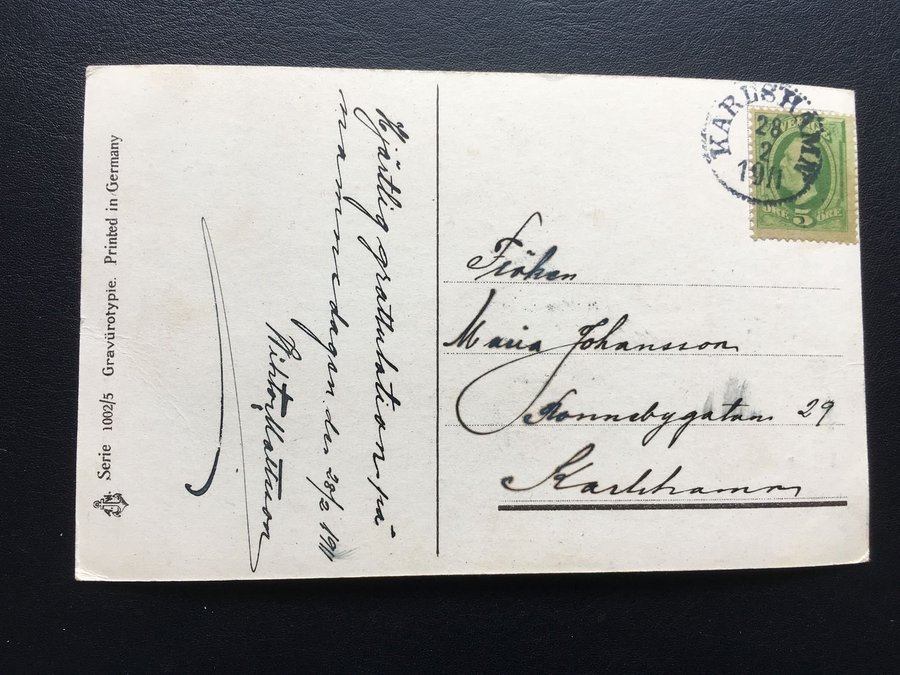 Serie 1002/5 Gravürotypie. Printed in Germany
Hjärtlig grattulation på
mamnsdagen den 28/2 1911
Mattsson
KARLSHAMN
28
2
1911
5
ÖRE ÖRE
Fröken
Maria Johansson
Ronnebygatan 29
Karlshamn